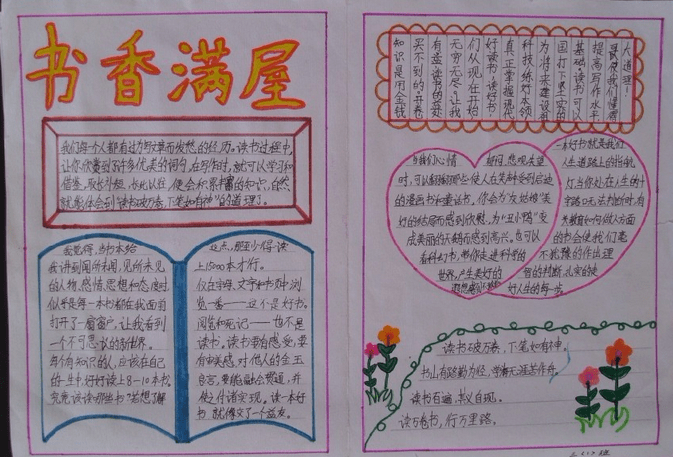 书香满屋
我们每个人都有过为写文章而发愁的经历。读书过程中,
让你欣赏到了许多优美的词句,在写作时,就可以学习和
借鉴,取长补短,长此以往,便会积累丰富的知识,自然
就能体会到"读书破万卷,下笔如有神"的道理了。
我觉得,当书本给
我讲到闻所未闻,见所未见
的人物、感情、思想和态度时
似乎是每一本书都在我面前
打开了一扇窗户,让我看到
一个不可思议的新世界。
每个有知识的人,应该在自己
的一生中好好读上8-10本书,
究竟该读哪些书"若想了解
这点,那至少得读
上15000本才行。
仅在字母、文字和书页中浏
览一番——这不是好书。
阅览和死记——也不是
读书。读书要有感受,要
有审美感,对他人的金玉
良言,要能融会贯通,并
使之付诸实现。读一本好
书,就像交了一个益友。
知识是用金钱
买不到的。开卷
有益,读书的益处
无穷无尽。让我
们从现在开始
好读书,读好书!
真正掌握现代
科技,练好本领
为将来建设祖
国打下坚实的
基础。读书可以
提高写作水平
使我们懂得
大道理!
当我们心情
时,可以翻翻那些使人在笑声中受到启迪
的漫画书和童话书,你会为"灰姑娘"美
好的结局而感到欣慰,为"丑小鸭"变
成美丽的天鹅而感到高兴。也可以
看科幻书,带你走进科学的
世界,产生美好的
一本好书就是我们
人生道路上的指航
灯当你处在人生的十
字路口无法判断时,有
关教育如何做人方面
的书会使我们毫
不犹豫的作出理
智的判断,扎实的走
好人生的每一步。
读书破万卷,下笔如有神。
书山有路勤为径,学海无涯苦作舟。
读书百遍,其义自现。
读万卷书,行万里路。